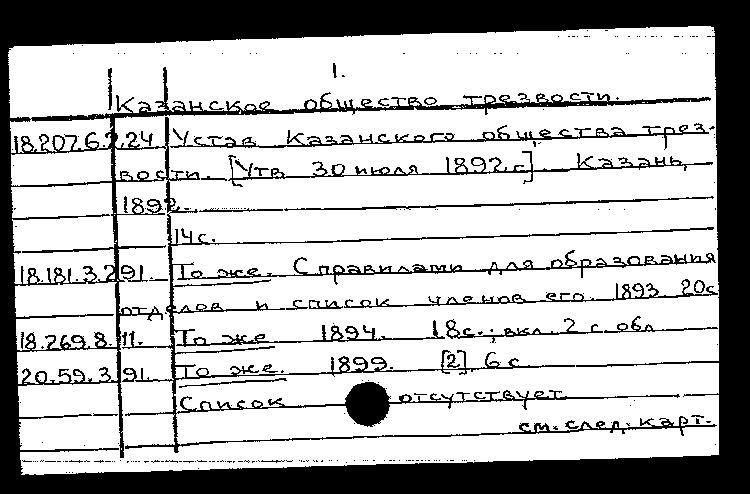 1.
Казанское общество трезвости.
18.207.6.2.24. Устав Казанского общества трез-
вости. [Утв 30 июля 1892 г.] Казань,
1892.
14 с.
18.181.3.291. То же. С правилами для образования
отделов и список членов его. 1893. 20с
18.269.8.11. То же 1894. 18 с.; вкл. 2 с. обл
20.59.3.91. То же. 1899. [2], 6 с.
Список отсутствует
см. след. карт.